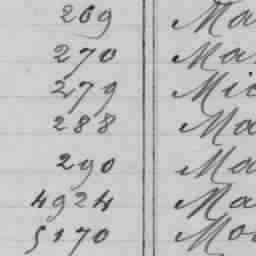 269 Ma
270 Mar
279 Mic
288 Ma
290 Ma
4924 Ma
5170 Mo